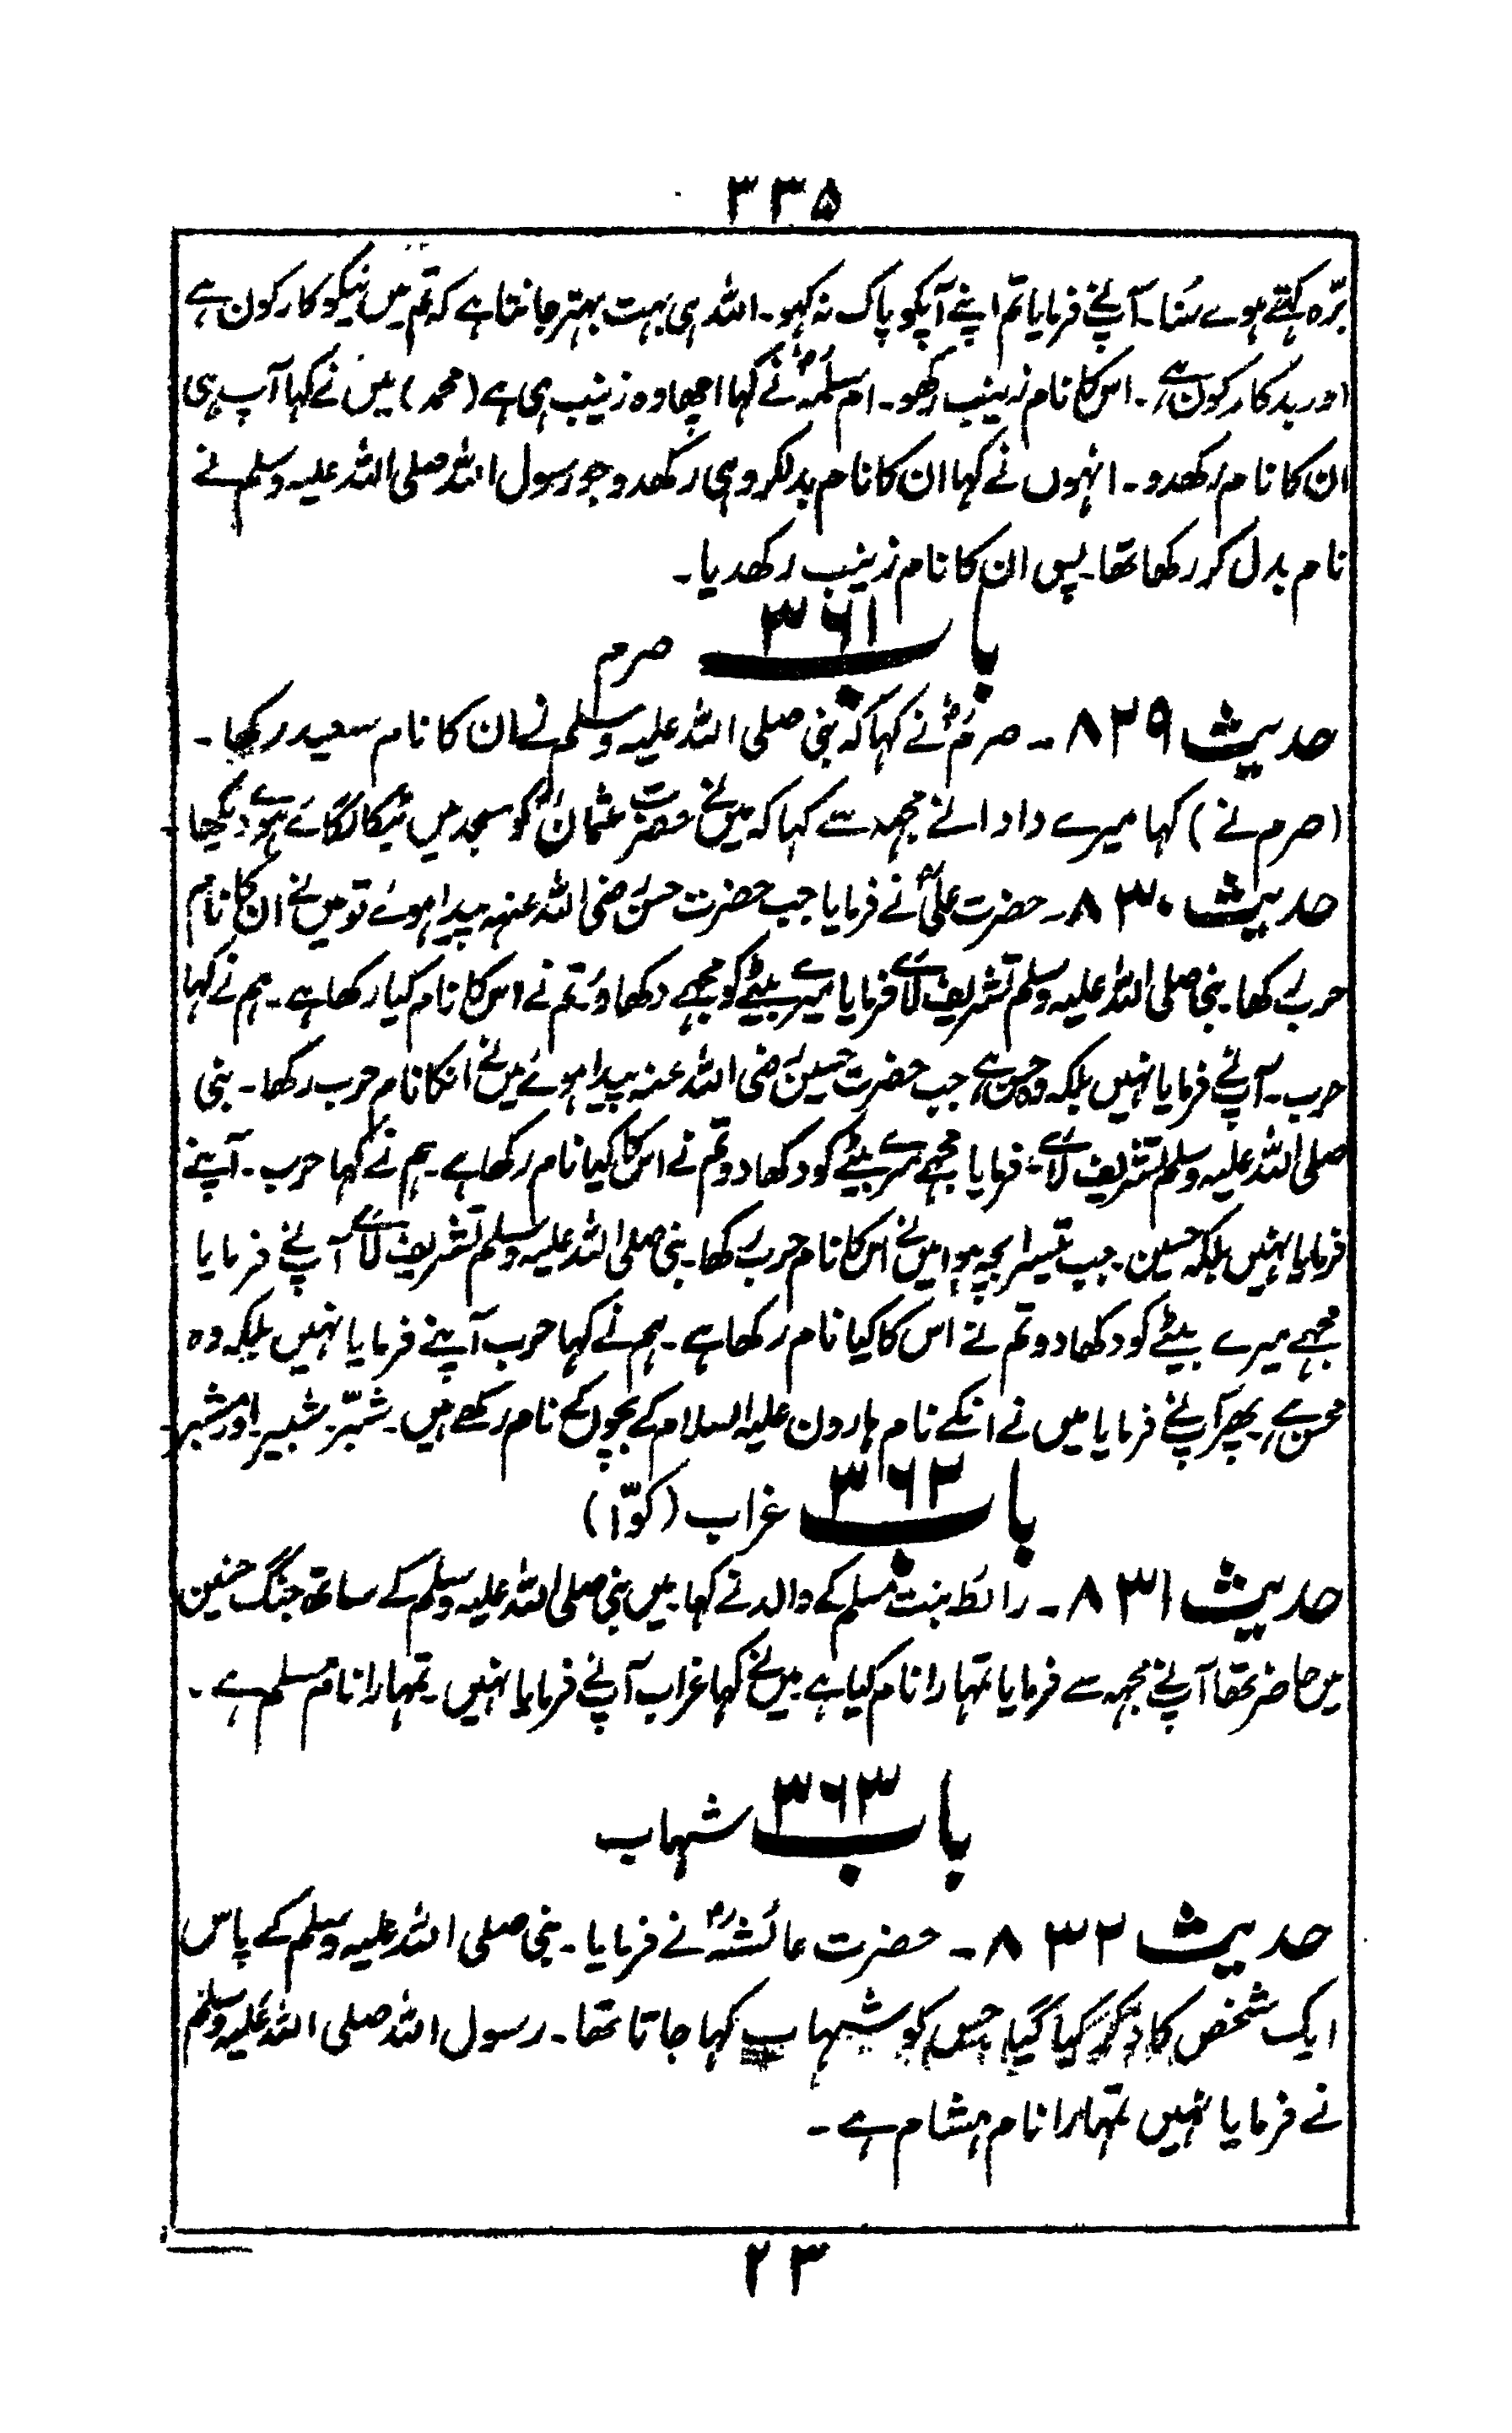 ۳۳۵
برّہ کہتے ہوے سُنا۔ آپنے فرمایا تم اپنے آپکو پاک نہ کہو۔ اللہ ہی بہت بہتر جانتا ہے کہ تم میں نیکو کار کون ہے
اور بدکار کون ہے۔ اس کا نام زینب رکھو۔ ام سلمہؓ نے کہا اچھا وہ زینب ہی ہے (محمد) میں نے کہا آپ ہی
ان کا نام رکھدو۔ انہوں نے کہا ان کا نام بدلکر وہی رکھدو جو رسول اللہ صلی اللہ علیہ وسلم نے
نام بدل کر رکھا تھا۔ پس ان کا نام زینب رکھدیا۔
باب ۳۶۱ صرم
حدیث ۸۲۹۔ صرمؓ نے کہا کہ نبی صلی اللہ علیہ وسلم نے ان کا نام سعید رکھا۔
(صرم نے) کہا میرے دادا نے مجھہ سے کہا کہ میں نے حضرت عثمانؓ کو مسجد میں تکیا لگائے ہوے دیکھا۔
حدیث ۸۳۰۔ حضرت علیؓ نے فرمایا جب حضرت حسن رضی اللہ عنہ پیدا ہوے تو میں نے ان کا نام
حرب رکھا۔ نبی صلی اللہ علیہ وسلم تشریف لائے فرمایا میرے بیٹے کو مجھے دکھاؤ۔ تم نے اس کا نام کیا رکھا ہے۔ ہم نے کہا
حرب۔ آپنے فرمایا نہیں بلکہ وہ حسن ہے جب حضرت حسین رضی اللہ عنہ پیدا ہوئے میں نے انکا نام حرب رکھا۔ نبی
صلی اللہ علیہ وسلم تشریف لائے۔ فرمایا مجھے میرے بیٹے کو دکھا دو تم نے اس کا کیا نام رکھا ہے۔ ہم نے کہا حرب۔ آپنے
فرمایا نہیں بلکہ حسین۔ جب تیسرا بچہ ہوا میں نے اس کا نام حرب رکھا۔ نبی صلی اللہ علیہ وسلم تشریف لائے آپ نے فرمایا
مجھے میرے بیٹے کو دکھا دو تم نے اس کا کیا نام رکھا ہے۔ ہم نے کہا حرب آپنے فرمایا نہیں بلکہ وہ
محسن ہے۔ پھر آپنے فرمایا میں نے انکے نام ہارون علیہ السلام کے بچوں کے نام رکھے ہیں۔ شبّر۔ شبیر۔ اور مشبر۔
باب ۳۶۲ غراب (کوّا)
حدیث ۸۳۱۔ رائطہ بنت مسلم کے والد نے کہا۔ میں نبی صلی اللہ علیہ وسلم کے ساتھ جنگ حنین
میں حاضر تھا آپنے مجھہ سے فرمایا تمہارا نام کیا ہے میں نے کہا غراب آپنے فرمایا نہیں۔ تمہارا نام مسلم ہے۔
باب ۳۶۳ شہاب
حدیث ۸۳۲۔ حضرت عائشہؓ نے فرمایا۔ نبی صلی اللہ علیہ وسلم کے پاس
ایک شخص کا ذکر کیا گیا جس کو شہاب کہا جاتا تھا۔ رسول اللہ صلی اللہ علیہ وسلم
نے فرمایا نہیں تمہارا نام ہشام ہے۔
۲۳